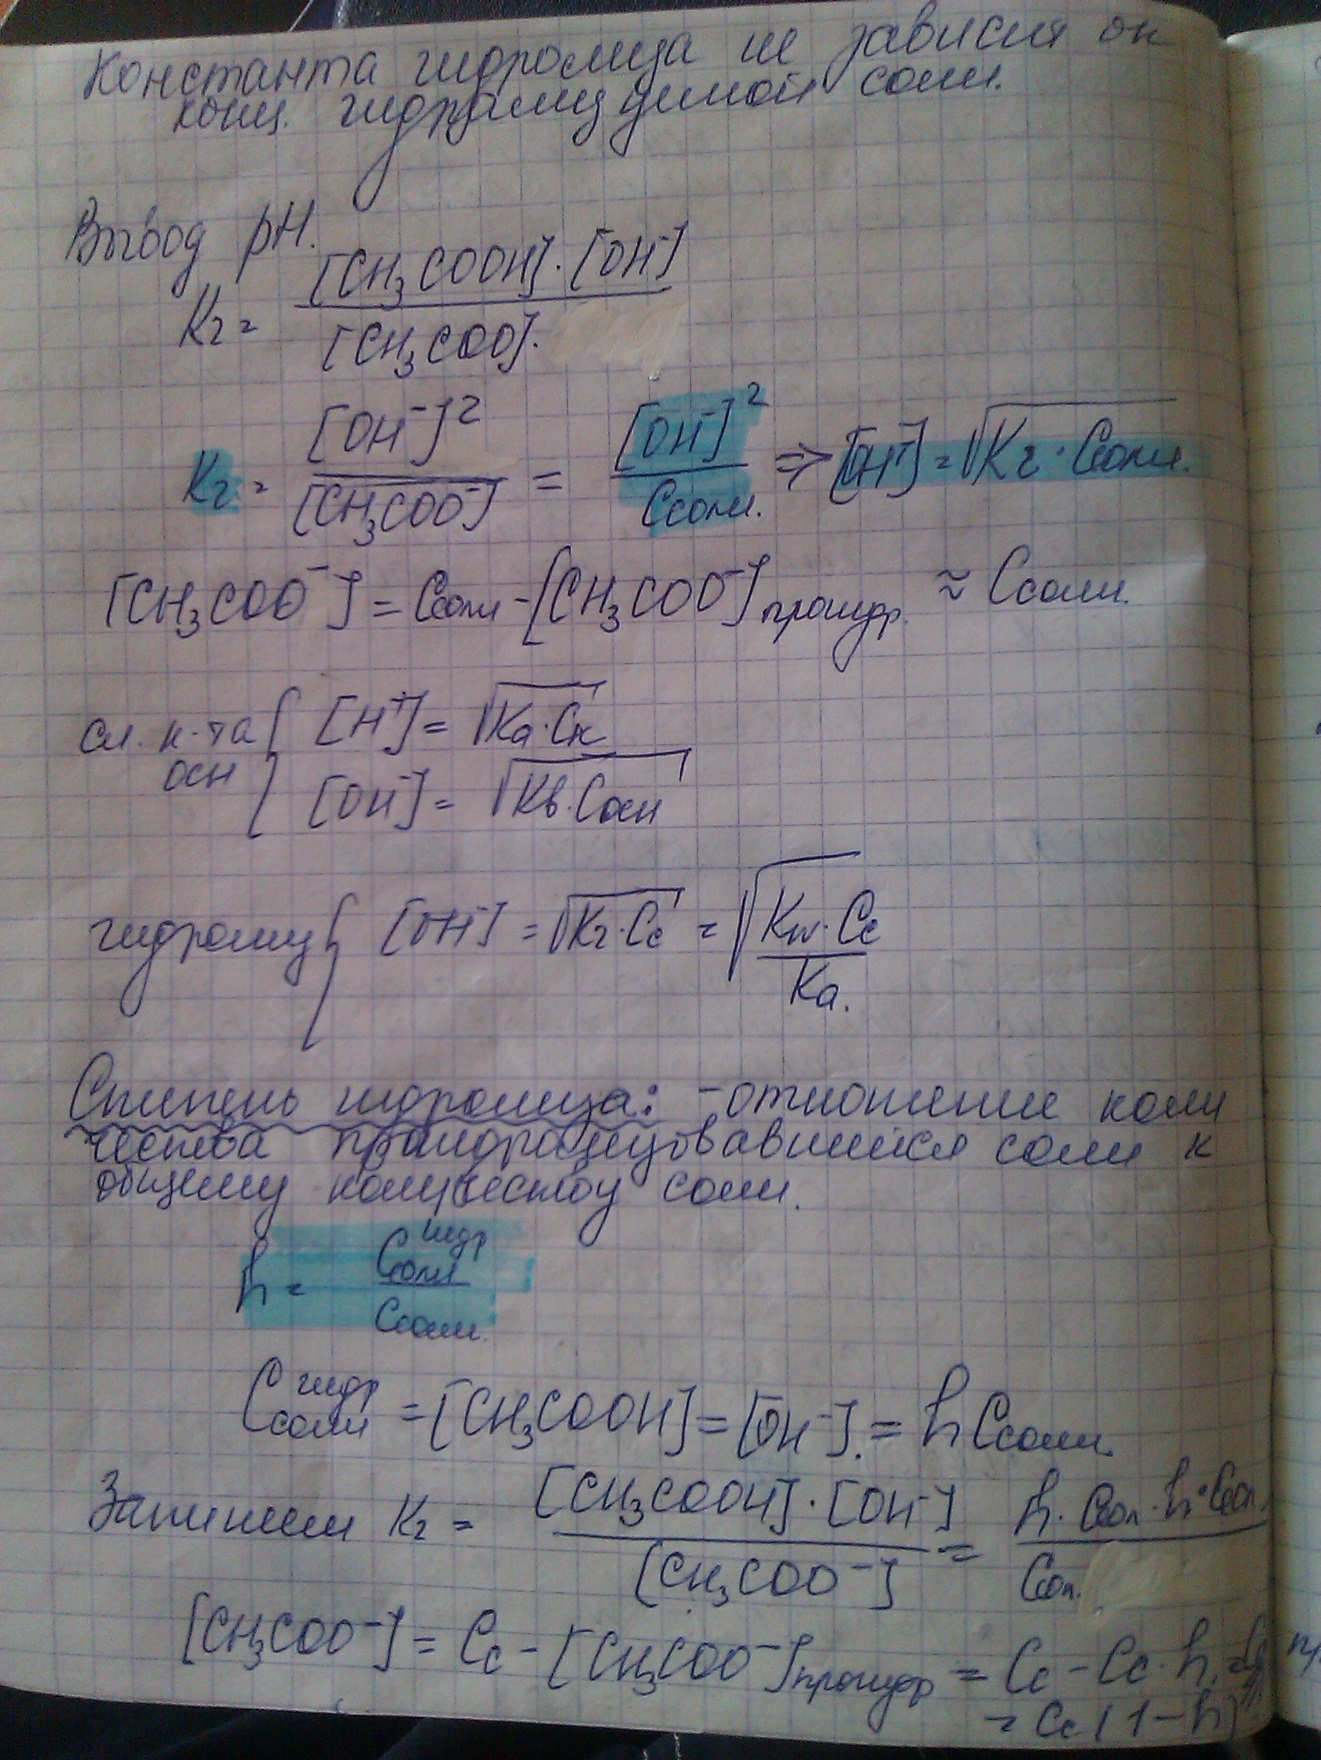 Константа гидролиза не зависит от
конц. гидролизуемой соли.
Вывод pH.
Kг = [CH₃COOH]·[OH⁻] / [CH₃COO]·
Kг = [OH⁻]² / [CH₃COO⁻] = [OH⁻]² / Cсоли. ⇒ [OH⁻] = √Kг·Cсоли.
[CH₃COO⁻] = Cсоли - [CH₃COO⁻]прогидр. ≈ Cсоли.
сл. к-та { [H⁺] = √Ka·Cк
осн { [OH⁻] = √Kb·Cосн
гидролиз { [OH⁻] = √Kг·Cс = √Kw·Cс / Ka.
Степень гидролиза: - отношение коли
чества прогидролизовавшейся соли к
общему количеству соли.
h = Cсоли гидр / Cсоли.
Cсоли гидр = [CH₃COOH] = [OH⁻]. = h Cсоли.
Запишем Kг = [CH₃COOH]·[OH⁻] / [CH₃COO⁻] = h·Cсол·h·Cсол. / Cсол.
[CH₃COO⁻] = Cс - [CH₃COO⁻]прогидр = Cс - Cс·h. =
= Cс (1-h)